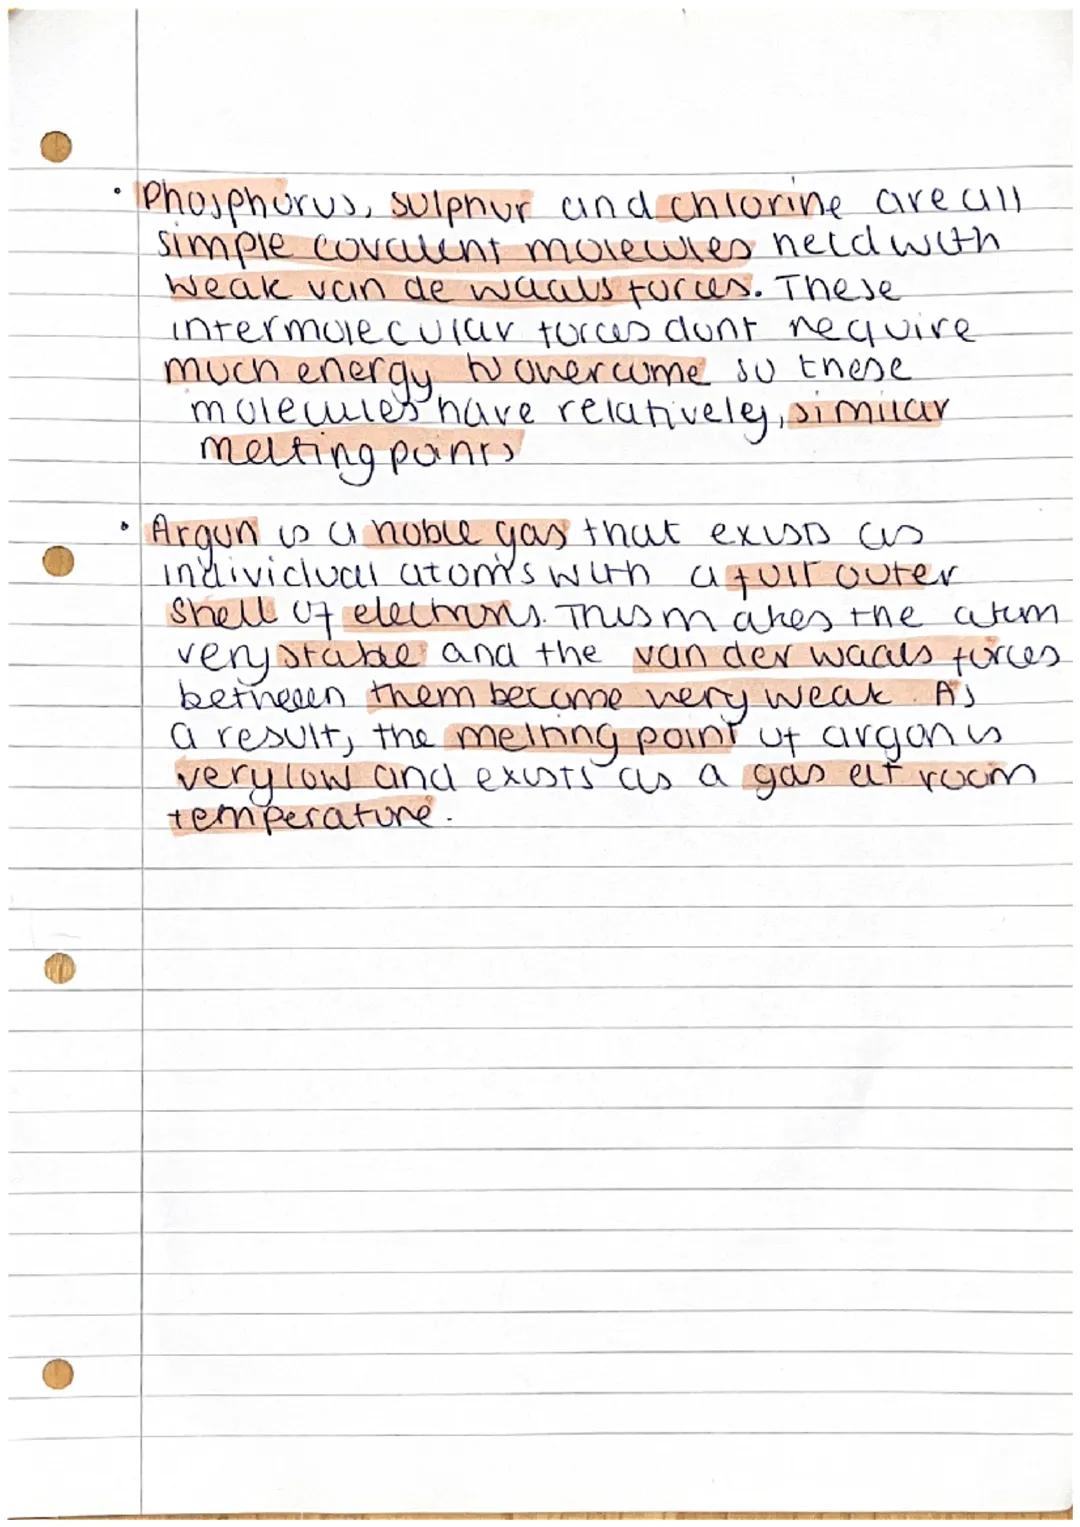 • Phosphorus, sulphur and chlorine are all
simple covalent molecules held with
weak van de waals forces. These
intermolecular forces dont require
much energy to overcome so these
molecules have relatively, similar
melting points
• Argon is a noble gas that exists as
individual atoms with a full outer
shell of electrons. This makes the atom
very stable and the van der waals forces
between them become very weak. As
a result, the melting point of argon is
very low and exists as a gas at room
temperature.